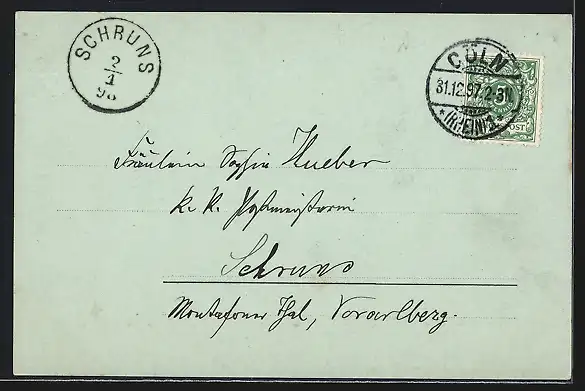 SCHRUNS
2
1
98
CÖLN
31.12.97. 2-3N.
* (RHEIN) *
POST
Fräulein Sophie Hueber
k. k. Postmeisterin
Schruns
Montafoner Thal, Vorarlberg.